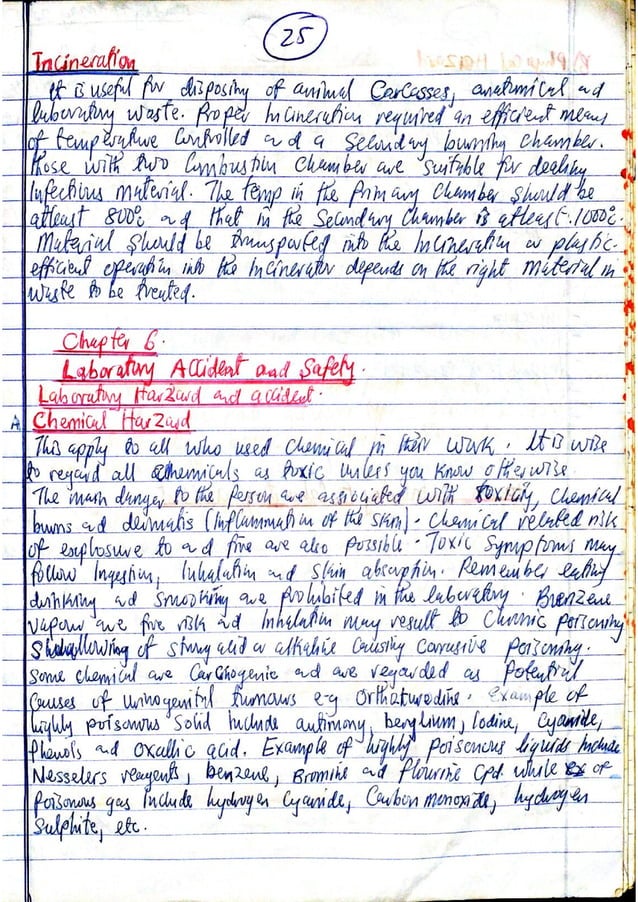 25
Incineration
It is useful for disposing of animal Carcasses, anatomical and
laboratory waste. Proper Incineration required an efficient means
of temperature Controlled and a Secondary burning chamber.
those with two Combustion chamber are suitable for dealing
Infectious material. The temp in the Primary chamber should be
atleast 800°c and that in the Secondary chamber is atleast 1000°c.
Material should be transported into the Incineration or plastic
efficient operation into the Incinerator depends on the right material in
waste to be treated.
Chapter 6.
Laboratory Accident and Safety.
Laboratory HarZard and accident.
A Chemical HarZard
This apply to all who used Chemical in their work. It is wise
to regard all chemicals as toxic unless you know otherwise.
The main danger to the person are associated with toxicity, chemical
burns and dermatis (Inflammation of the skin). Chemical related risk
of explosure to and fire are also possible. Toxic Symptoms may
follow Ingestion, Inhalation and skin absorption. Remember eating
drinking and smooking are prohibited in the laboratory. Brenzene
vapour are fire risk and Inhalation may result to Chronic poisoning
Swallowing of strong acid or alkaline causing corrosive poisoning.
some chemical are Carcinogenic and are regarded as potential
causes of urinogenital tumours e.g Example of
highly poisonous solid include antimony, berylium, Iodine, cyanide,
phenols and oxallic acid. Example of highly poisonous liquids Include
Nesselers reagents, benzene, Bromine and flourine Cpd. while ex of
poisonous gas Include hydrogen Cyanide, Carbon monoxide, hydrogen
Sulphite, etc.